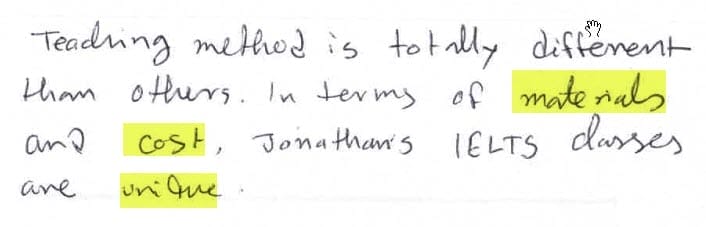 Teaching method is totally different
than others. In terms of materials
and cost, Jonathan's IELTS classes
are unique.